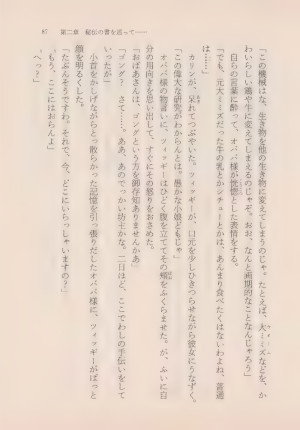 87　第二章　秘伝の書を巡って――
「この機械はな、生き物を他の生き物に変えてしまうのじゃ。たとえば、大ミーズなどを、か
わいらしい鶏や牛に変えてしまえるのじゃ。おお、なんと画期的なことなんじゃろう」
自らの言葉に酔って、オババ様が恍惚とした表情をする。
「でも、元大ミーズだった牛の乳とかシチューとかは、あんまり食べたくはないわよね、普通
カリンが、呆れてつぶやいた。フィッギーが、口元を少しひきつらせながら彼女にうなずく。
「この偉大な研究がわからんとは。愚かな小娘どもじゃ」
オババ様の物言いに、ツィッギーはひどく腹を立ててその頬をふくらませた。が、ふいに自
分の用向きを思い出して、すぐにその怒りをおさめた。
「おばあさんは、ゴングという方を御存知ありませんか」
「ゴング？　さて……。ああ、あのでっかい坊主かな。二日ほど、ここでわしの手伝いをして
いったが」
小首をかしげながらとっ散らかった記憶を引っ張りだしたオババ様に、ツィッギーがぱっと
顔を明るくした。
「たぶんそうですわ。それで、今、どこにいらっしゃいますの？」
「もう、ここにはおらんよ」
「へっ？」